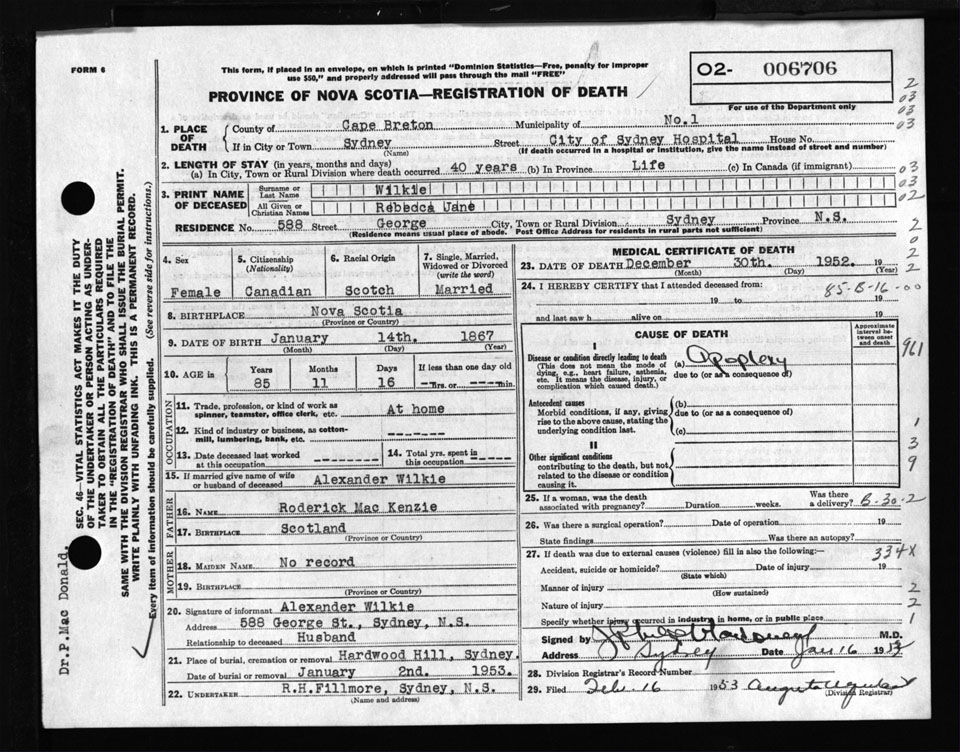 FORM 6
This form, if placed in an envelope, on which is printed "Dominion Statistics—Free, penalty for improper
use $50," and properly addressed will pass through the mail "FREE"
PROVINCE OF NOVA SCOTIA—REGISTRATION OF DEATH
02- 006706
For use of the Department only
1. PLACE OF DEATH
County of Cape Breton Municipality of No.1
If in City or Town Sydney Street City of Sydney Hospital House No.
(Name) (If death occurred in a hospital or institution, give the name instead of street and number)
2. LENGTH OF STAY (in years, months and days)
(a) In City, Town or Rural Division where death occurred 40 years (b) In Province Life (c) In Canada (if immigrant)
3. PRINT NAME OF DECEASED
Surname or Last Name Wilkie
All Given or Christian Names Rebecca Jane
RESIDENCE No. 588 Street George City, Town or Rural Division Sydney Province N.S.
(Residence means usual place of abode. Post Office Address for residents in rural parts not sufficient)
4. Sex
Female
5. Citizenship
(Nationality)
Canadian
6. Racial Origin
Scotch
7. Single, Married,
Widowed or Divorced
(write the word)
Married
8. BIRTHPLACE Nova Scotia
(Province or Country)
9. DATE OF BIRTH January 14th. 1867
(Month) (Day) (Year)
10. AGE
Years Months Days If less than one day old
85 11 16 ---hrs. or ----min.
OCCUPATION
11. Trade, profession, or kind of work as
spinner, teamster, office clerk, etc. At home
12. Kind of industry or business, as cotton-
mill, lumbering, bank, etc. ------
13. Date deceased last worked
at this occupation --------
14. Total yrs. spent in
this occupation -----
15. If married give name of wife
or husband of deceased Alexander Wilkie
FATHER
16. NAME Roderick Mac Kenzie
17. BIRTHPLACE Scotland
(Province or Country)
MOTHER
18. MAIDEN NAME No record
19. BIRTHPLACE
(Province or Country)
20. Signature of informant Alexander Wilkie
Address 588 George St., Sydney, N.S.
Relationship to deceased Husband
21. Place of burial, cremation or removal Hardwood Hill, Sydney.
Date of burial or removal January 2nd. 1953.
22. UNDERTAKER R.H.Fillmore, Sydney, N.S.
(Name and address)
MEDICAL CERTIFICATE OF DEATH
23. DATE OF DEATH December 30th. 1952. 19
(Month) (Day) (Year)
24. I HEREBY CERTIFY that I attended deceased from: 85-B-16-00
19 to 19
and last saw h alive on 19
CAUSE OF DEATH
Approximate
interval be-
tween onset
and death
I
Disease or condition directly leading to death
(This does not mean the mode of
dying, e.g., heart failure, asthenia,
etc. It means the disease, injury, or
complication which caused death.)
(a) Apoplexy
due to (or as a consequence of)
Antecedent causes
Morbid conditions, if any, giving
rise to the above cause, stating the
underlying condition last.
(b)
due to (or as a consequence of)
(c)
II
Other significant conditions
contributing to the death, but not
related to the disease or condition
causing it.
25. If a woman, was the death
associated with pregnancy? Duration weeks. Was there
a delivery? B-30-2
26. Was there a surgical operation? Date of operation 19
State findings Was there an autopsy?
27. If death was due to external causes (violence) fill in also the following:— 334X
Accident, suicide or homicide? Date of injury 19
(State which)
Manner of injury
(How sustained)
Nature of injury
Specify whether injury occurred in industry, in home, or in public place
Signed by M.D.
Address Sydney Date Jan 16 1953
28. Division Registrar's Record Number
29. Filed Feb. 16 1953
(Division Registrar)
2
03
03
03
03
03
02
2
0
2
2
961
1
3
9
2
2
1
SEC. 46—VITAL STATISTICS ACT MAKES IT THE DUTY
OF THE UNDERTAKER OR PERSON ACTING AS UNDER-
TAKER TO OBTAIN ALL THE PARTICULARS REQUIRED
IN THE "REGISTRATION OF DEATH" AND TO FILE THE
SAME WITH THE DIVISION REGISTRAR WHO SHALL ISSUE THE BURIAL PERMIT.
WRITE PLAINLY WITH UNFADING INK. THIS IS A PERMANENT RECORD.
Every item of information should be carefully supplied. (See reverse side for instructions.)
Dr.P.Mac Donald.